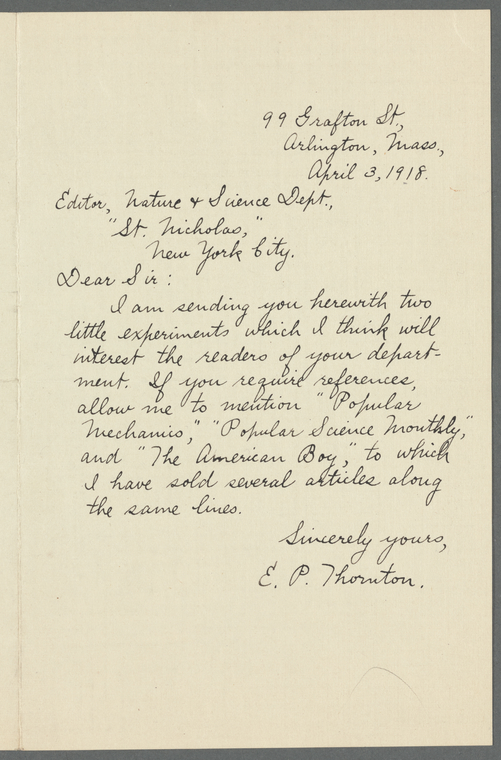 99 Grafton St.,
Arlington, Mass.,
April 3, 1918.
Editor, Nature & Science Dept.,
"St. Nicholas,"
New York City.
Dear Sir:
I am sending you herewith two
little experiments which I think will
interest the readers of your depart-
ment. If you require references,
allow me to mention "Popular
Mechanics," "Popular Science Monthly,"
and "The American Boy," to which
I have sold several articles along
the same lines.
Sincerely yours,
E. P. Thornton.